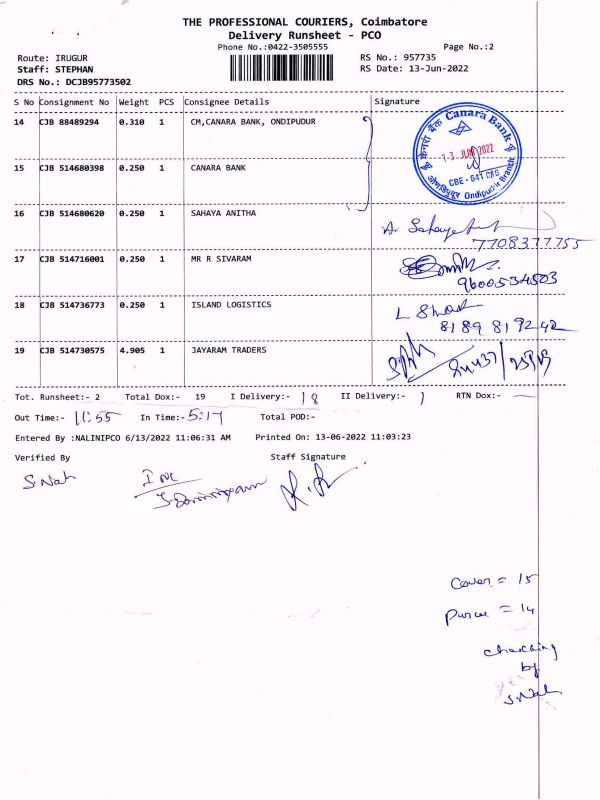 THE PROFESSIONAL COURIERS, Coimbatore
Delivery Runsheet - PCO
Phone No.:0422-3505555
Page No.:2
Route: IRUGUR
RS No.: 957735
Staff: STEPHAN
RS Date: 13-Jun-2022
DRS No.: DCJB95773502
S No Consignment No Weight PCS Consignee Details Signature
14 CJB 88489294 0.310 1 CM,CANARA BANK, ONDIPUDUR
केनरा बैंक Canara Bank
13 JUN 2022
Ondipudur Branch
15 CJB 514680398 0.250 1 CANARA BANK
16 CJB 514680620 0.250 1 SAHAYA ANITHA
7708377755
17 CJB 514716001 0.250 1 MR R SIVARAM
9600534503
18 CJB 514736773 0.250 1 ISLAND LOGISTICS
8189819242
19 CJB 514730575 4.905 1 JAYARAM TRADERS
Tot. Runsheet:- 2 Total Dox:- 19 I Delivery:- 18 II Delivery:- 1 RTN Dox:- —
Out Time:- 11:55 In Time:- 5:17 Total POD:-
Entered By :NALINIPCO 6/13/2022 11:06:31 AM Printed On: 13-06-2022 11:03:23
Verified By Staff Signature
Cover = 15
= 14
checking
by